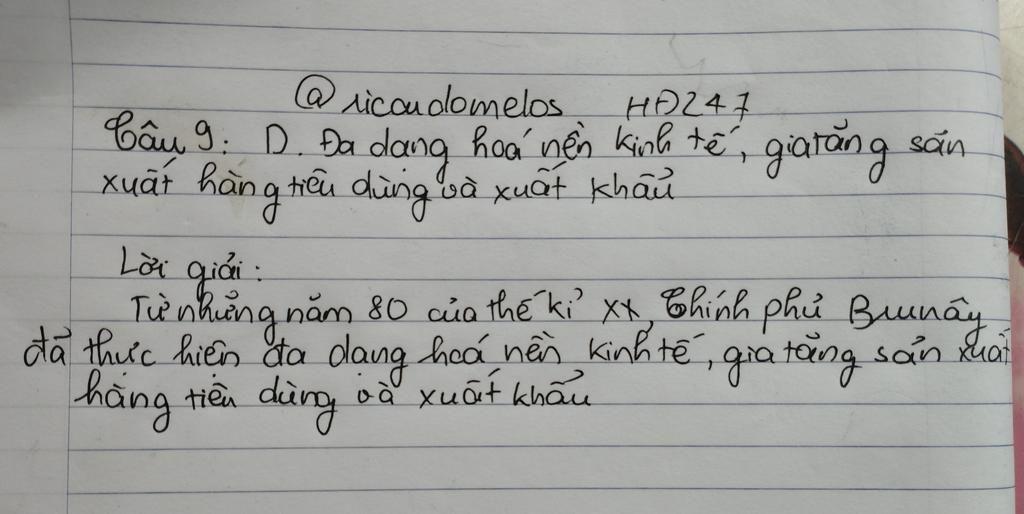 @ricaudomelos HĐ247
Câu 9: D. Đa dạng hoá nền kinh tế, gia tăng sản
xuất hàng tiêu dùng và xuất khẩu
Lời giải:
Từ những năm 80 của thế kỉ XX, Chính phủ Brunây
đã thực hiện đa dạng hoá nền kinh tế, gia tăng sản xuất
hàng tiêu dùng và xuất khẩu